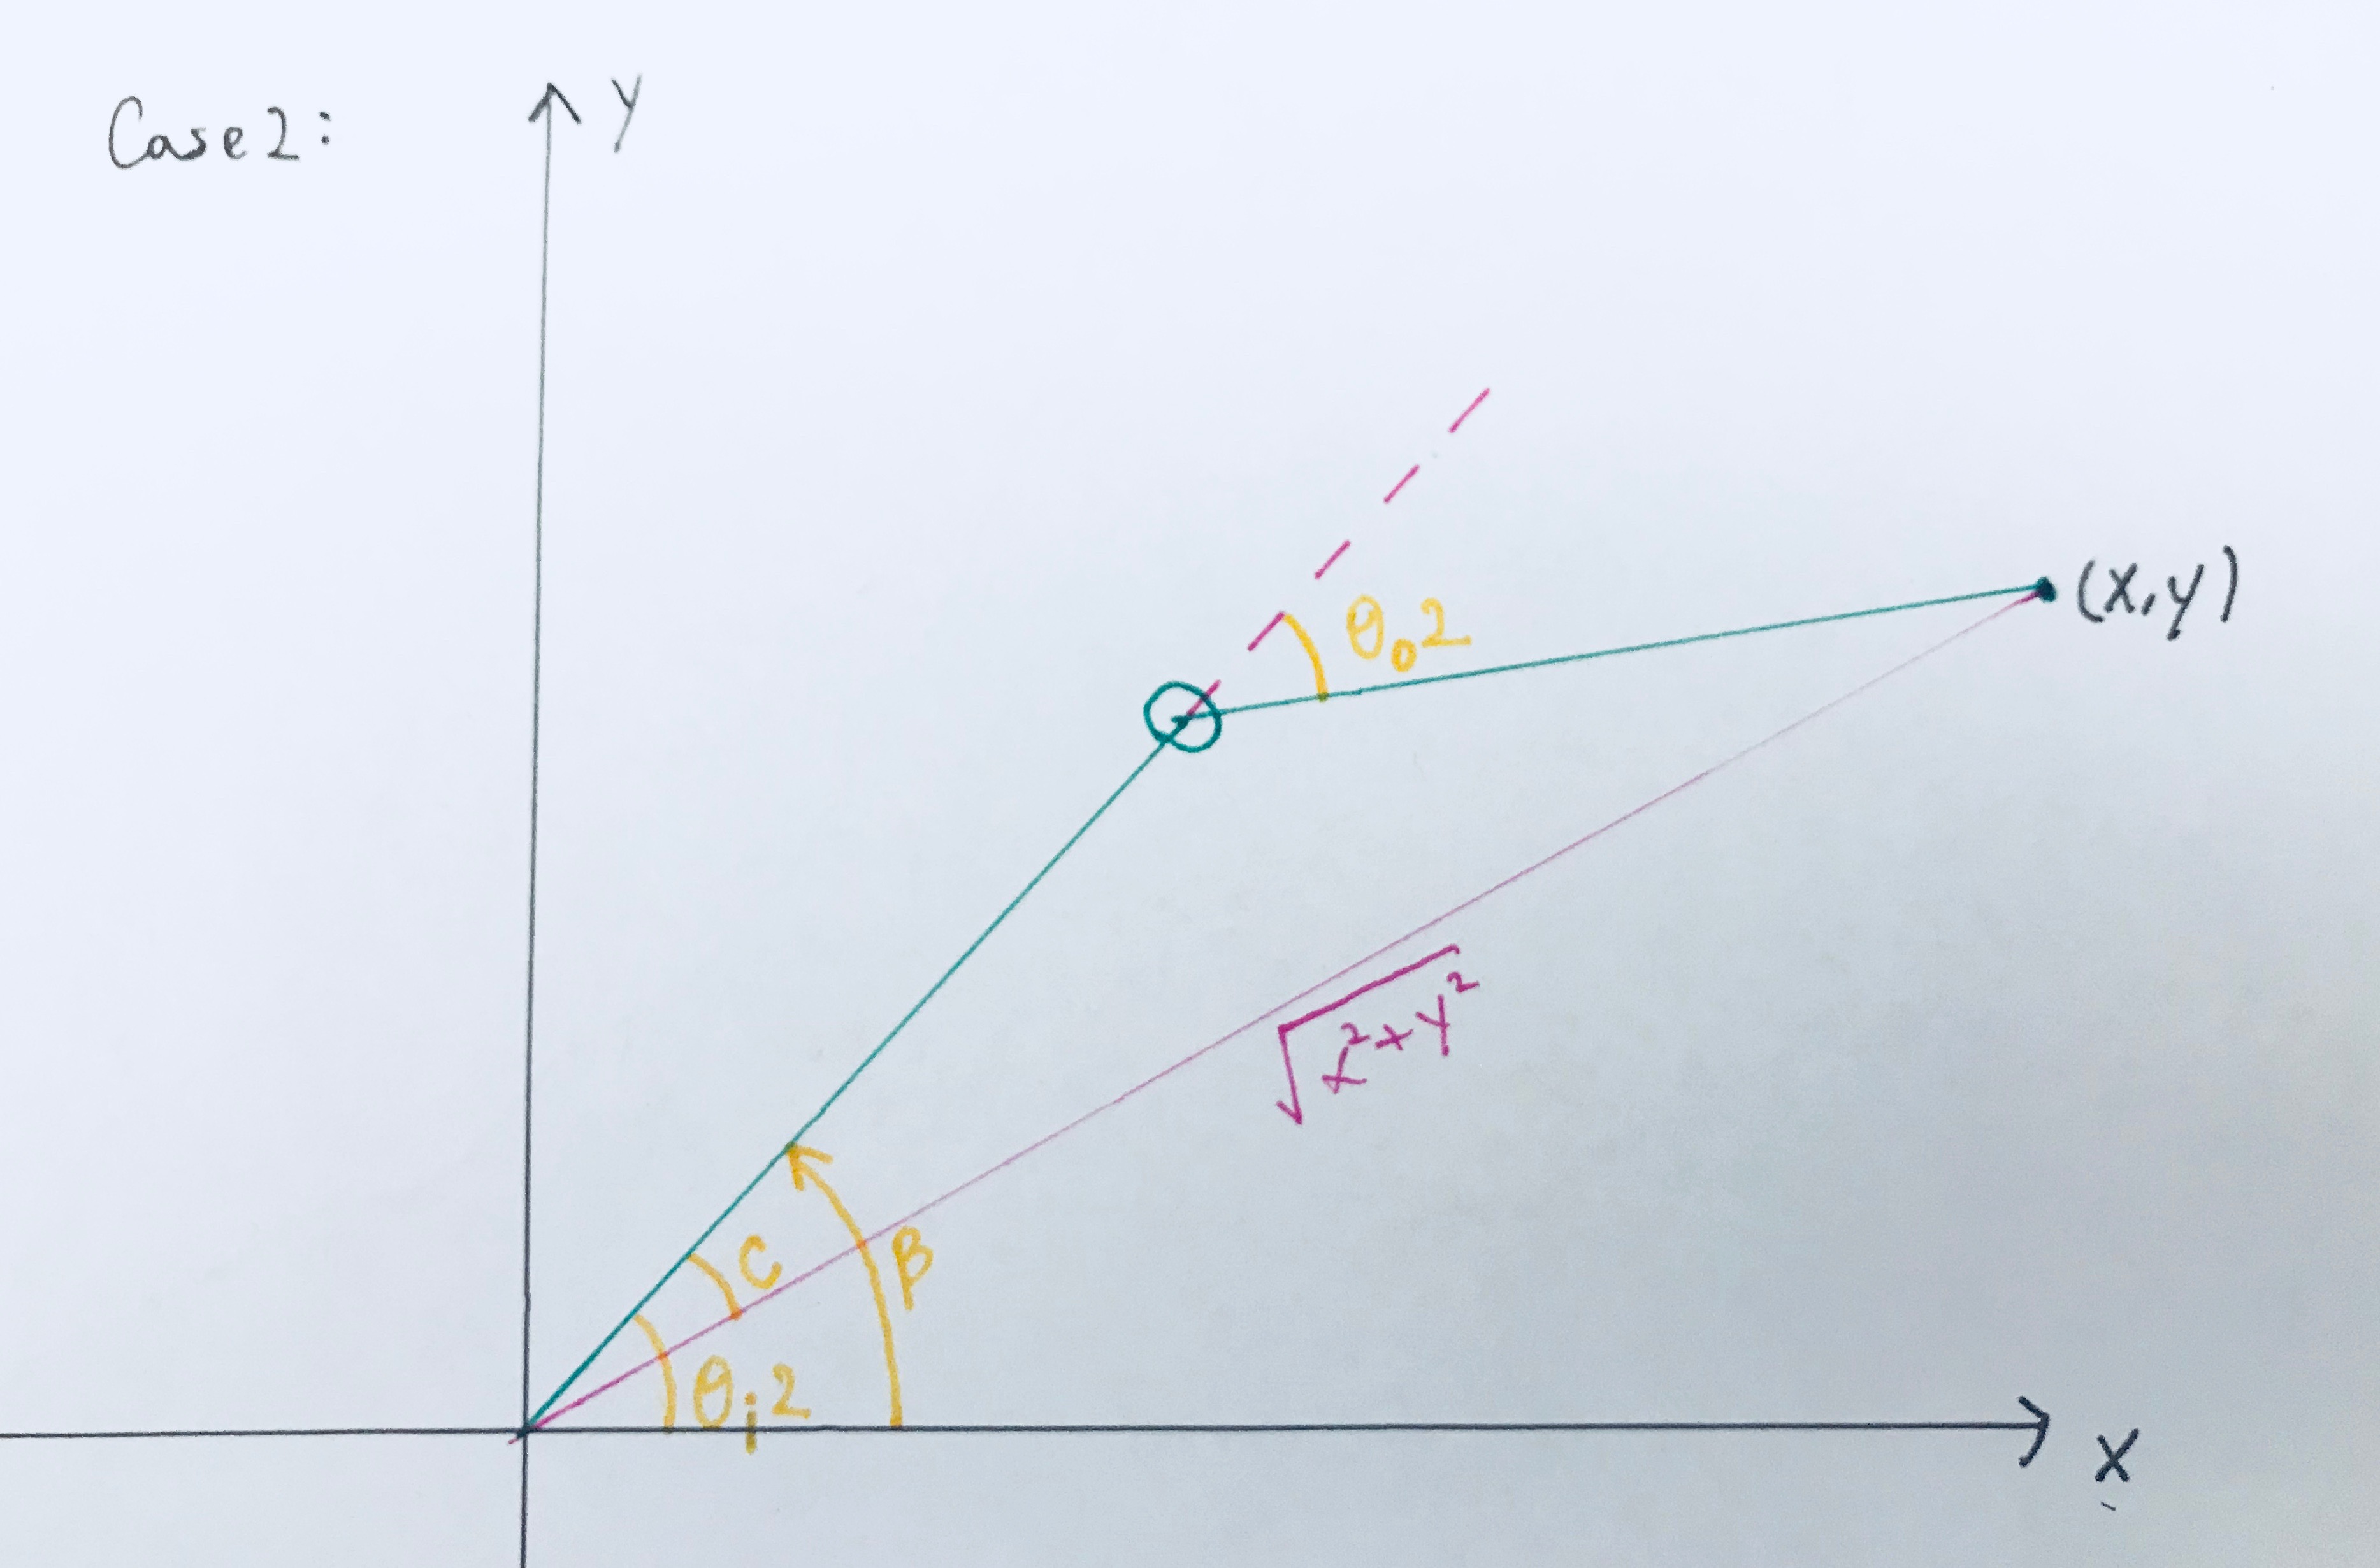 Case 2:
y
(x,y)
θₒ2
√x²+y²
C
β
θᵢ2
x